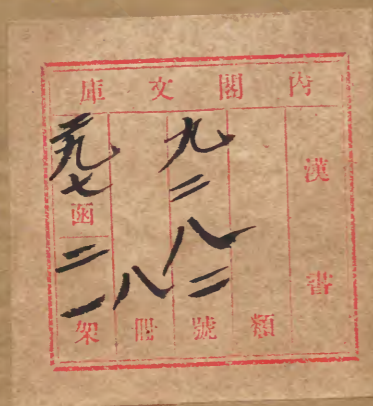 内閣文庫
漢書
類
九二八二號
八冊
二九七函
二一架